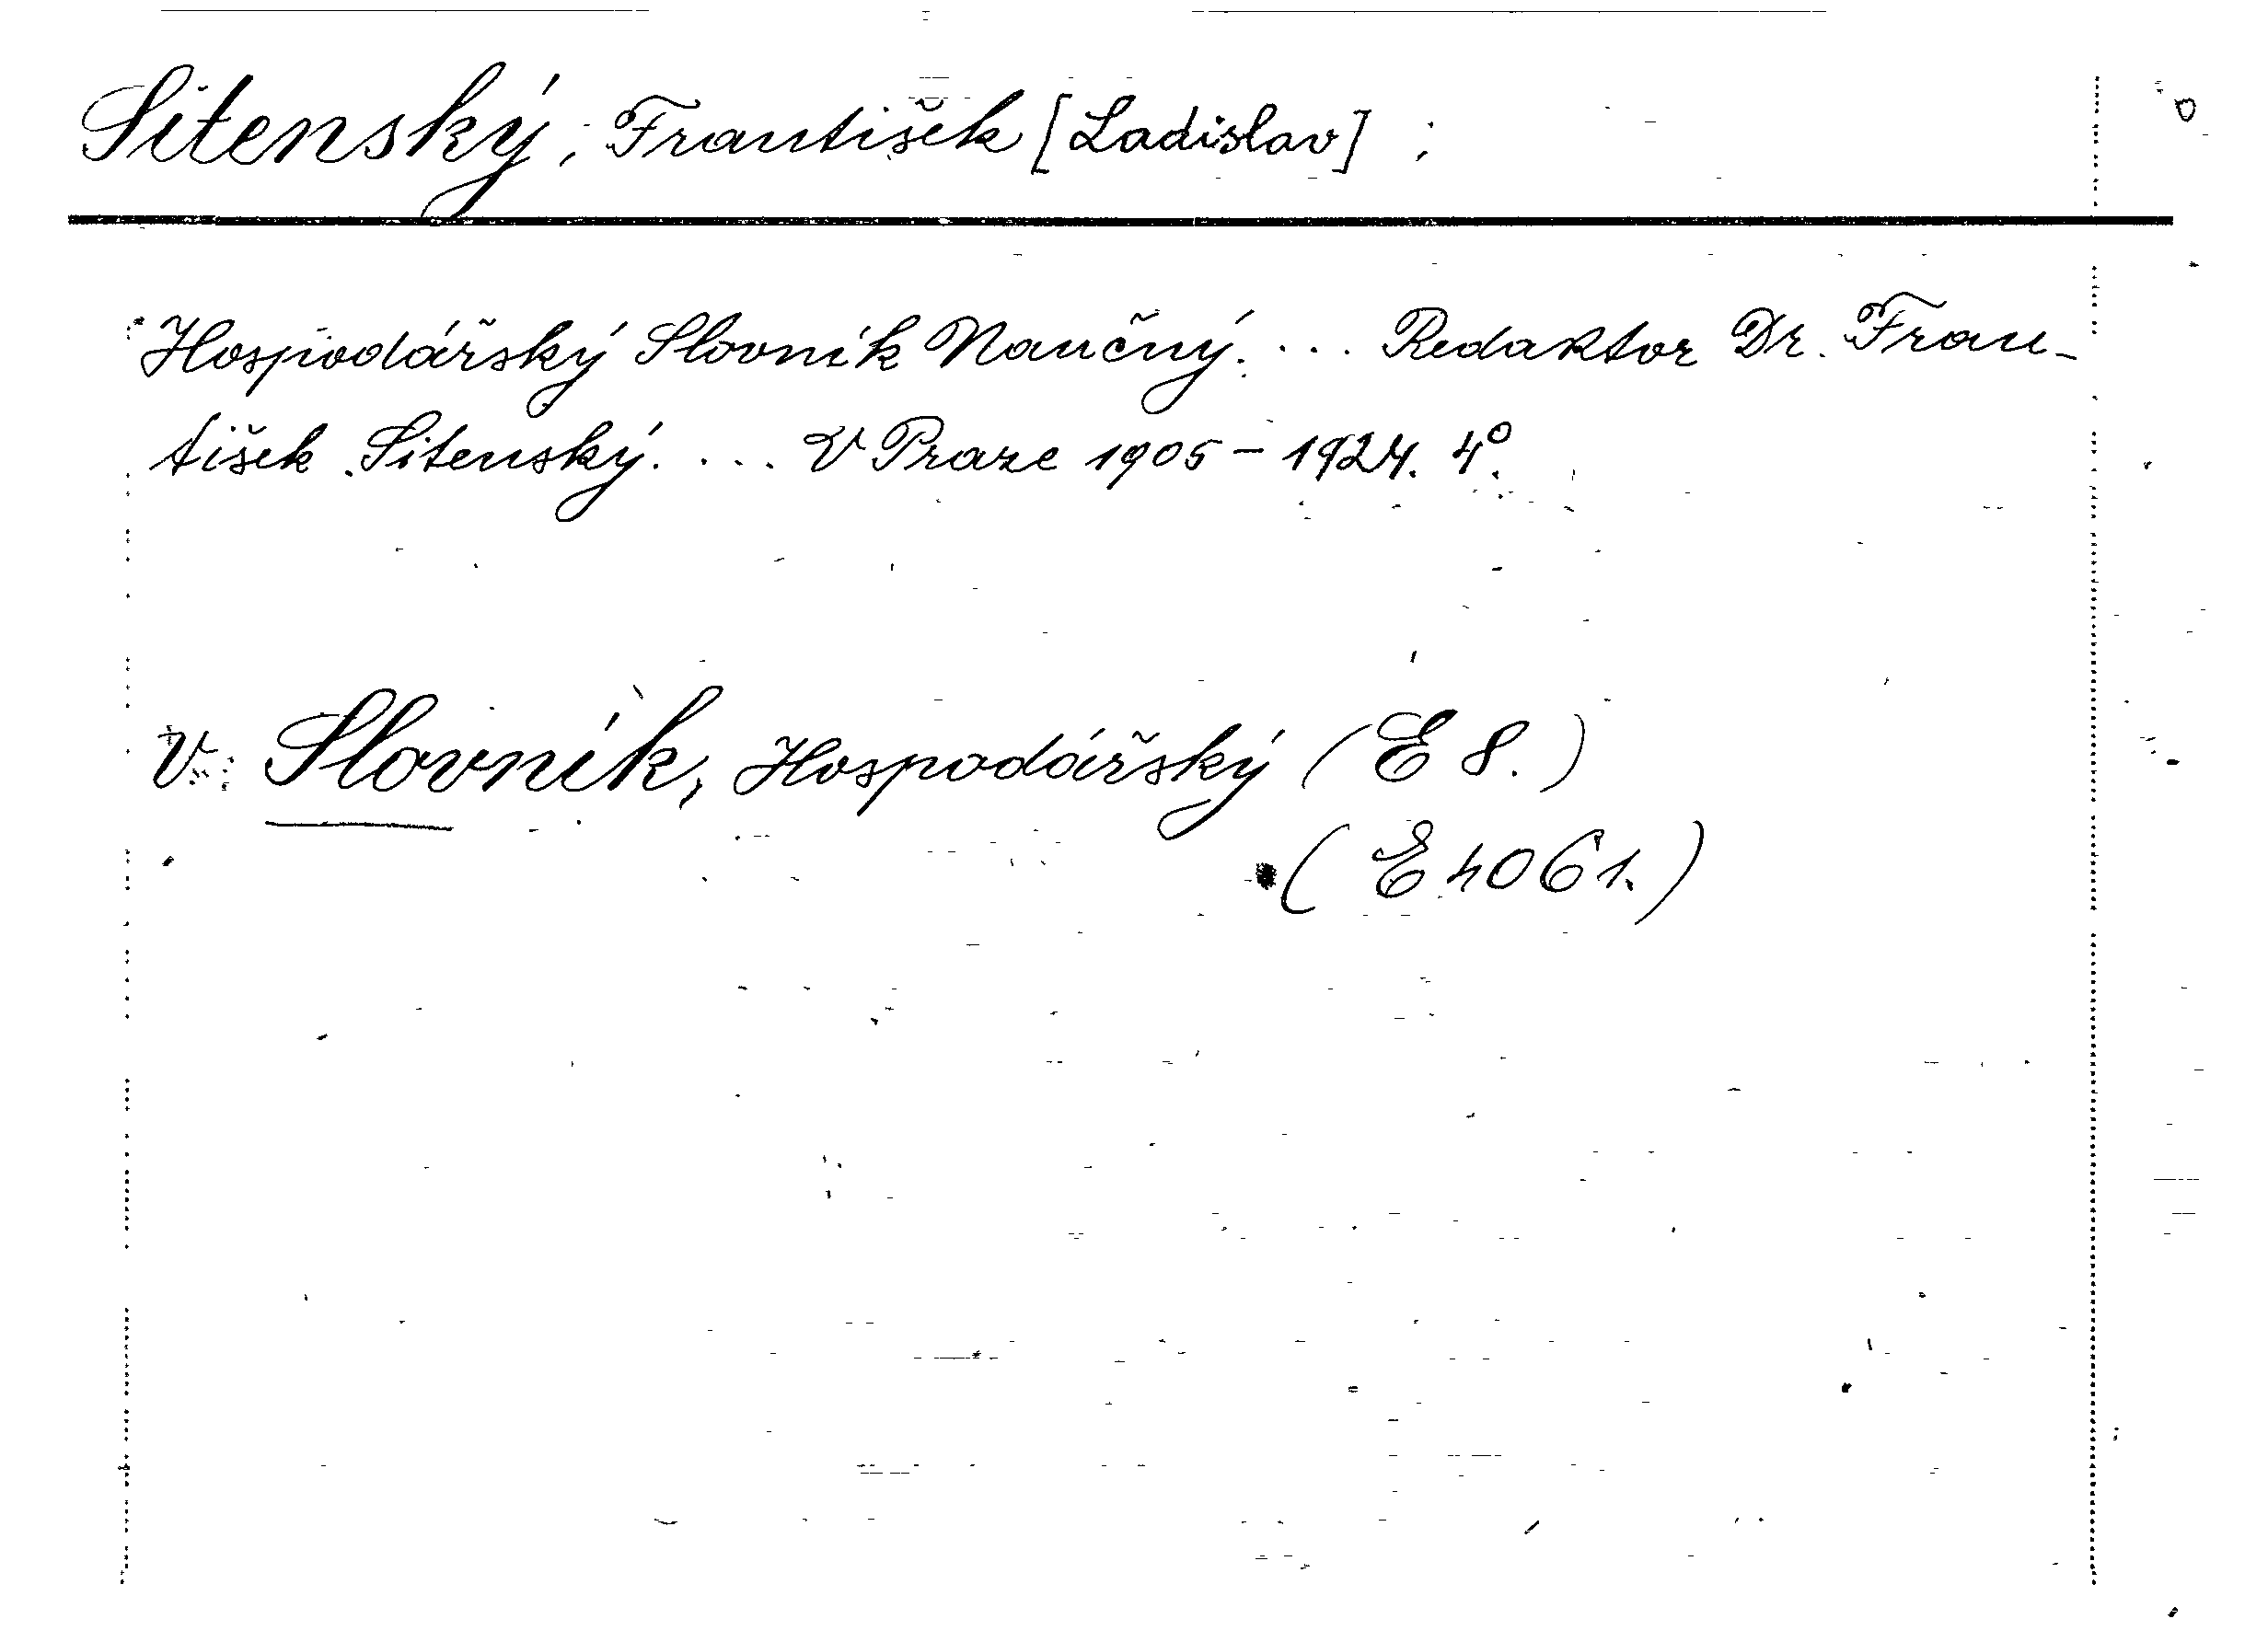 Sitenský, František [Ladislav];
Hospodářský Slovník Naučný. ... Redaktor Dr. Fran-
tišek Sitenský. ... V Praze 1905 - 1924. 4°.
V: Slovník, Hospodářský (E 8.)
(E 4061.)